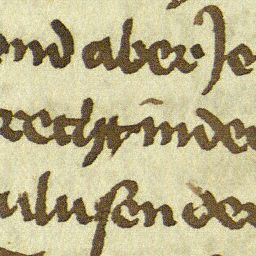 end aber Je
recht in der
ulusen der